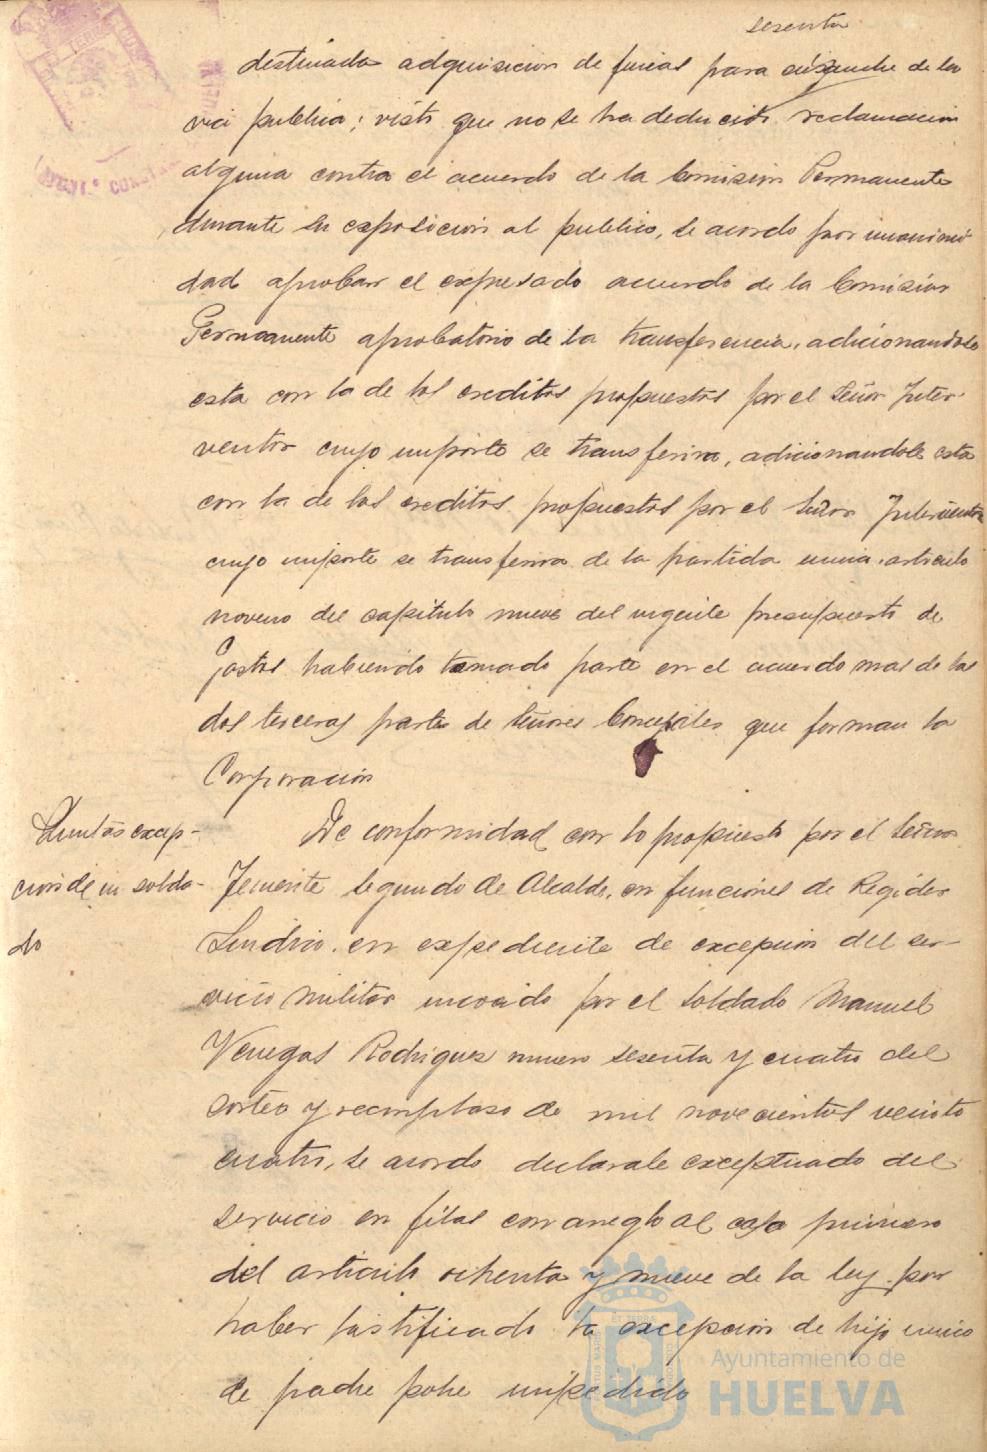 sesenta
destinada adquisicion de fincas para ensanche de la
via publica; visto que no se ha deducido reclamacion
alguna contra el acuerdo de la Comision Permanente
durante su exposicion al publico, se acordo por unanimi
dad aprobar el expresado acuerdo de la Comision
Permanente aprobatorio de la transferencia, adicionandose
esta con la de los creditos propuestos por el Señor Inter-
ventor cuyo importe se transferira, adicionandole esta
con la de los creditos propuestos por el Señor Interventor
cuyo importe se transferira de la partida unica, articulo
noveno del capitulo nueve del vigente presupuesto de
Gastos habiendo tomado parte en el acuerdo mas de las
dos terceras partes de Señores Concejales que forman la
Corporacion
excep-
cion de un solda-
do
De conformidad con lo propuesto por el Señor
Teniente Segundo de Alcalde, en funciones de Regidor
Sindico, en expediente de excepcion del ser-
vicio militar incoado por el soldado Manuel
Venegas Rodriguez numero sesenta y cuatro del
sorteo y reemplaso de mil novecientos veinte
cuatro, se acordo declarale exceptuado del
servicio en filas con arreglo al caso primero
del articulo ochenta y nueve de la ley, por
haber justificado la excepcion de hijo unico
de padre pobre impedido
Ayuntamiento de
HUELVA